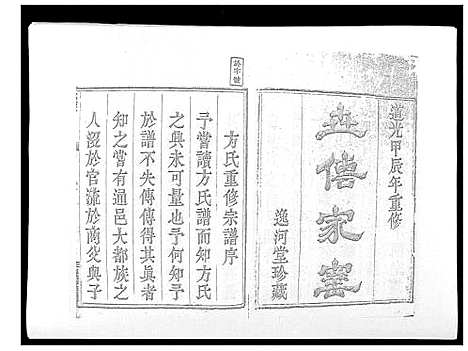 道光甲辰年重修
世傳家寶
逸河堂珍藏
方氏重修宗譜序
予嘗讀方氏譜而知方氏
之興未可量也予何知予
於譜不失傳傳得其眞者
知之嘗有通邑大都族之
人涩於官流於商炎與子